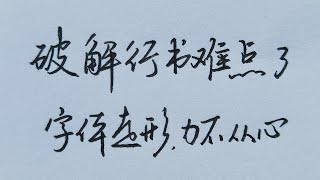 破解行书难点3
字体走形,力不从心